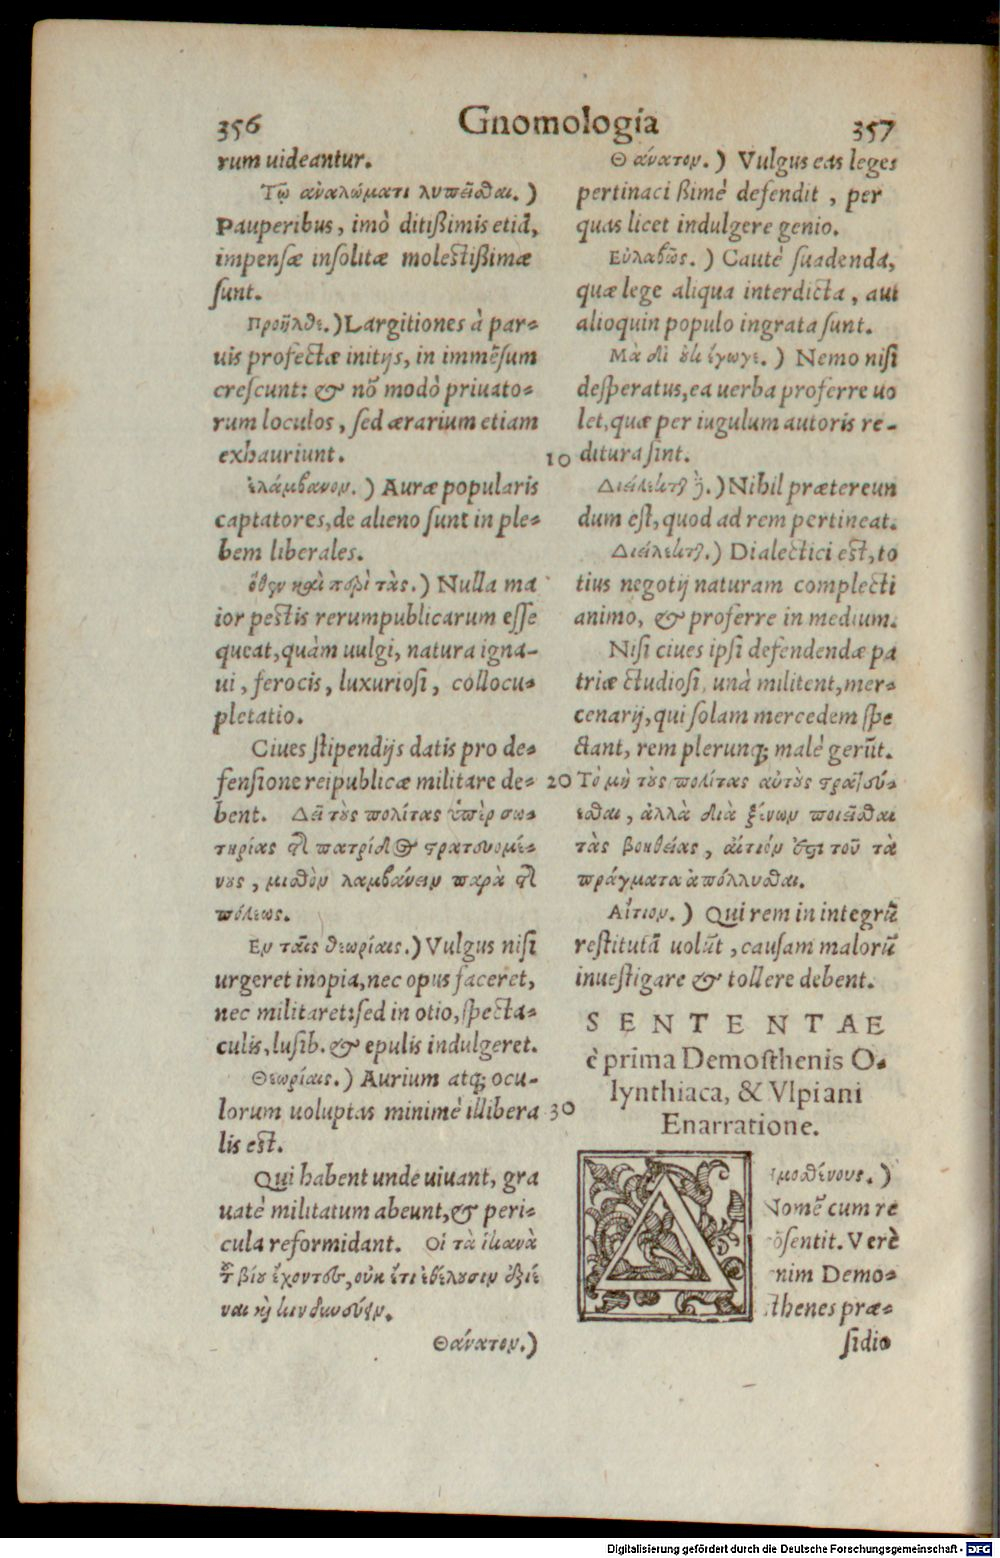 356 Gnomologia 357
rum uideantur.
Τῷ ἀναλώματι λυπεῖσθαι.)
Pauperibus, imò ditißimis etiã,
impensæ insolitæ molestißimæ
sunt.
Προῆλθε.) Largitiones à par-
uis profectæ initijs, in immẽsum
crescunt: & nõ modò priuato-
rum loculos, sed ærarium etiam
exhauriunt.
ἐλάμβανον.) Auræ popularis
captatores, de alieno sunt in ple-
bem liberales.
ὅθεν καὶ περὶ τὰς.) Nulla ma
ior pestis rerumpublicarum esse
queat, quàm uulgi, natura igna-
ui, ferocis, luxuriosi, collocu-
pletatio.
Ciues stipendijs datis pro de-
fensione reipublicæ militare de-
bent. Δεῖ τοὺς πολίτας ὑπὲρ σω-
τηρίας τῆς πατρίδος στρατευομέ-
νους, μισθὸν λαμβάνειν παρὰ τῆς
πόλεως.
Εν ταῖς θεωρίαις.) Vulgus nisi
urgeret inopia, nec opus faceret,
nec militaret: sed in otio, specta-
culis, lusib. & epulis indulgeret.
Θεωρίαις.) Aurium atq; ocu-
lorum uoluptas minimè illibera
lis est.
Qui habent unde uiuant, gra
uatè militatum abeunt, & peri-
cula reformidant. Οἱ τὰ ἱκανὰ
τοῦ βίου ἔχοντες, οὐκ ἔτι ἐθέλουσιν ἐξιέ-
ναι καὶ κινδυνεύειν.
Θάνατον.)
Θάνατον.) Vulgus eas leges
pertinacißimè defendit, per
quas licet indulgere genio.
Εὐλαβῶς.) Cautè suadenda,
quæ lege aliqua interdicta, aut
alioquin populo ingrata sunt.
Μὰ Δί οὐκ ἔγωγε.) Nemo nisi
desperatus, ea uerba proferre uo
let, quæ per iugulum autoris re-
10 ditura sint.
Διαλεκτικοῦ.) Nihil prætereun
dum est, quod ad rem pertineat.
Διαλεκτικοῦ.) Dialectici est, to
tius negotij naturam complecti
animo, & proferre in medium.
Nisi ciues ipsi defendendæ pa
triæ studiosi, unà militent, mer-
cenarij, qui solam mercedem spe
ctant, rem plerunq; malè gerũt.
20 Τὸ μὴ τοὺς πολίτας αὐτοὺς στρατεύ-
εσθαι, ἀλλὰ διὰ ξένων ποιεῖσθαι
τὰς βοηθείας, αἴτιόν ἐστι τοῦ τὰ
πράγματα ἀπόλλυσθαι.
Αἴτιον.) Qui rem in integrũ
restitutã uolũt, causam malorũ
inuestigare & tollere debent.
SENTENTAE
è prima Demosthenis O-
lynthiaca, & Vlpiani
30 Enarratione.
Δημοσθένους.)
Nomẽ cum re
cõsentit. Verè
enim Demo-
sthenes præ-
sidio
Digitalisierung gefördert durch die Deutsche Forschungsgemeinschaft - DFG